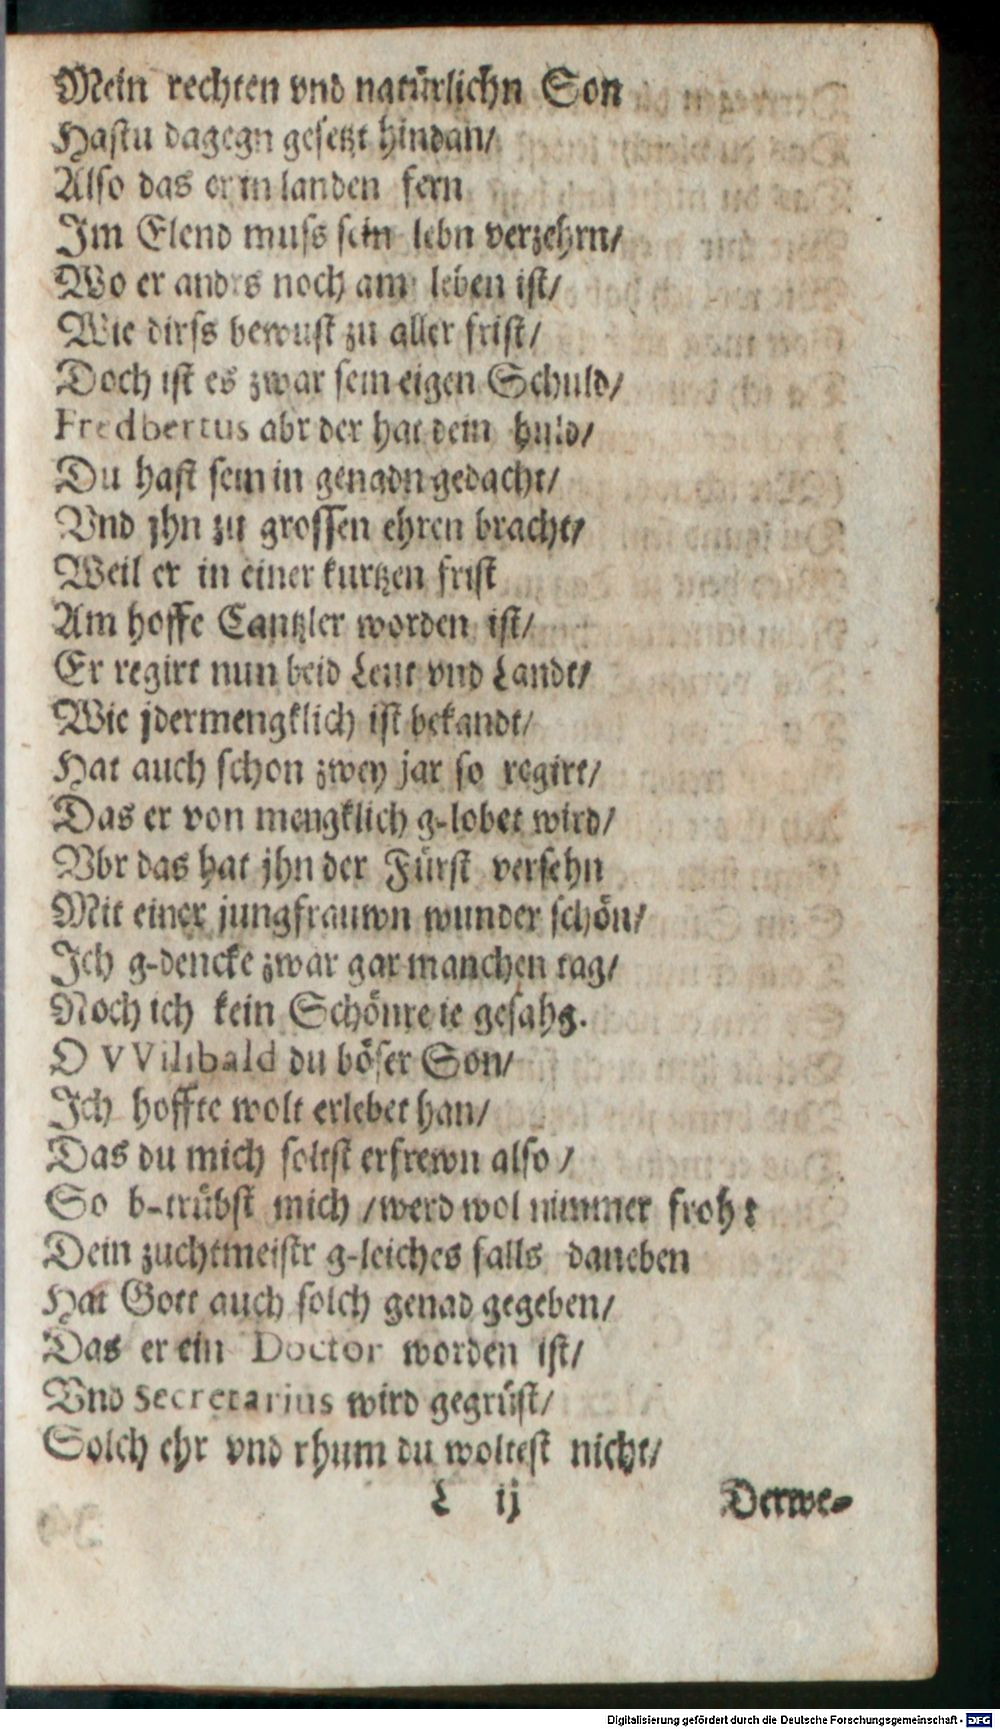 Mein rechten vnd natürlichn Son
Hastu dagegn gesetzt hindan/
Also das er in landen fern
Im Elend muss sein lebn verzehrn/
Wo er anders noch am leben ist/
Wie dirss bewust zu aller frist/
Doch ist es zwar sein eigen Schuld/
Fredbertus abr der hat dein huld/
Du hast sein in genadn gedacht/
Vnd jhn zu grossen ehren bracht/
Weil er in einer kurtzen frist
Am hoffe Cantzler worden ist/
Er regirt nun beid Leut vnd Landt/
Wie jdermengklich ist bekandt/
Hat auch schon zwey jar so regirt/
Das er von mengklich g-lobet wird/
Vbr das hat jhn der Fürst versehn
Mit einer jungfrauwn wunder schön/
Ich g-dencke zwar gar manchen tag/
Noch ich kein Schönre ie gesahg.
O VVilibald du böser Son/
Ich hoffte wolt erlebet han/
Das du mich soltst erfrewn also/
So b-trübst mich /werd wol nimmer froh:
Dein zuchtmeistr g-leiches falls daneben
Hat Gott auch solch genad gegeben/
Das er ein Doctor worden ist/
Vnd Secretarius wird gegrüst/
Solch ehr vnd rhum du woltest nicht/
L ij Derwe-
Digitalisierung gefördert durch die Deutsche Forschungsgemeinschaft - DFG